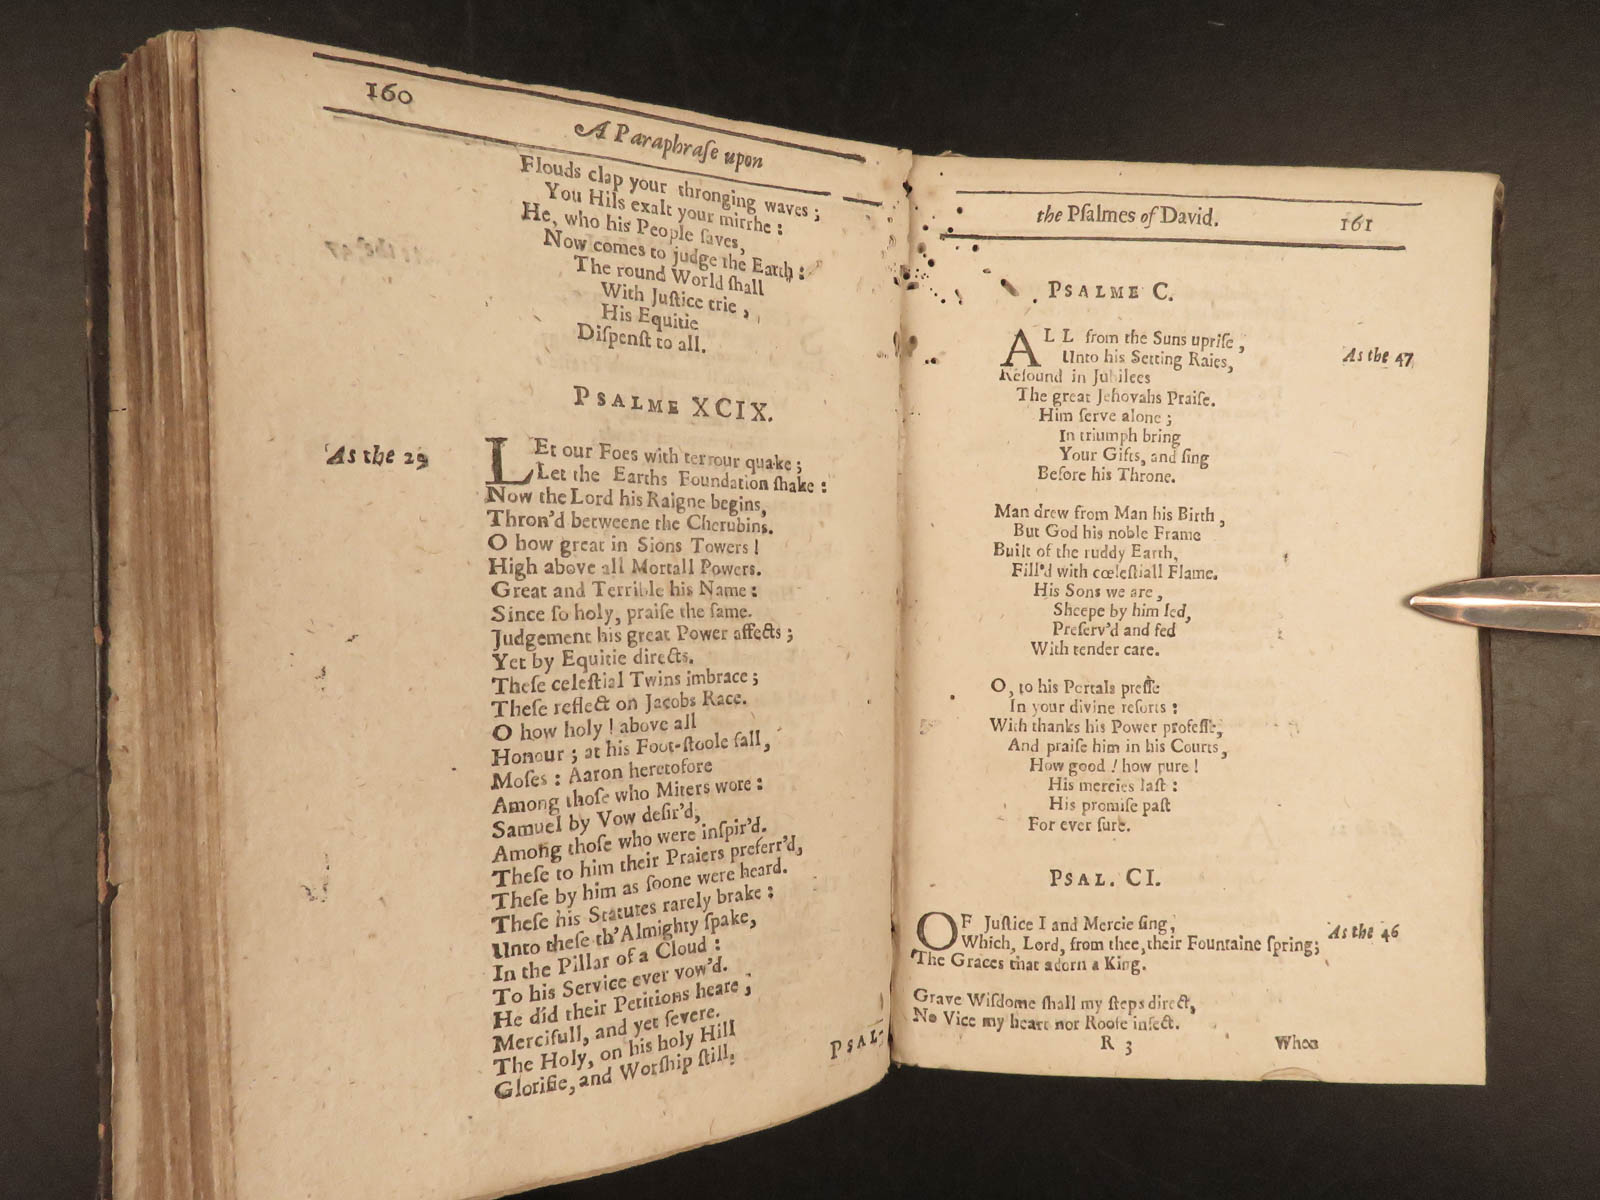 160
A Paraphraſe upon
Flouds clap your thronging waves ;
You Hils exalt your mirrhe :
He, who his People ſaves,
Now comes to judge the Earth :
The round World ſhall
With Juſtice trie ,
His Equitie
Diſpenſt to all.
PSALME XCIX.
As the 29
LEt our Foes with terrour quake ;
Let the Earths Foundation ſhake :
Now the Lord his Raigne begins,
Thron'd betweene the Cherubins.
O how great in Sions Towers !
High above all Mortall Powers.
Great and Terrible his Name :
Since ſo holy, praiſe the ſame.
Judgement his great Power affects ;
Yet by Equitie directs.
Theſe celeſtial Twins imbrace ;
Theſe reflect on Jacobs Race.
O how holy ! above all
Honour ; at his Foot-ſtoole fall,
Moſes : Aaron heretofore
Among thoſe who Miters wore :
Samuel by Vow deſir'd,
Among thoſe who were inſpir'd.
Theſe to him their Praiers preferr'd,
Theſe by him as ſoone were heard.
Theſe his Statutes rarely brake :
Unto theſe th'Almighty ſpake,
In the Pillar of a Cloud :
To his Service ever vow'd.
He did their Petitions heare ;
Mercifull, and yet ſevere.
The Holy, on his holy Hill
Glorifie, and Worſhip ſtill.
PSAL-
the Pſalmes of David.
161
PSALME C.
ALL from the Suns upriſe ,
Unto his Setting Raies,
Reſound in Jubilees
The great Jehovahs Praiſe.
Him ſerve alone ;
In triumph bring
Your Gifts, and ſing
Before his Throne.
As the 47
Man drew from Man his Birth ,
But God his noble Frame
Built of the ruddy Earth,
Fill'd with cœleſtiall Flame.
His Sons we are ,
Sheepe by him led,
Preſerv'd and fed
With tender care.
O, to his Portals preſſe
In your divine reſorts :
With thanks his Power profeſſe,
And praiſe him in his Courts,
How good ! how pure !
His mercies laſt :
His promiſe paſt
For ever ſure.
PSAL. CI.
OF Juſtice I and Mercie ſing,
Which, Lord, from thee, their Fountaine ſpring;
The Graces that adorn a King.
As the 46
Grave Wiſdome ſhall my ſteps direct,
No Vice my heart nor Rooſe infect.
R 3